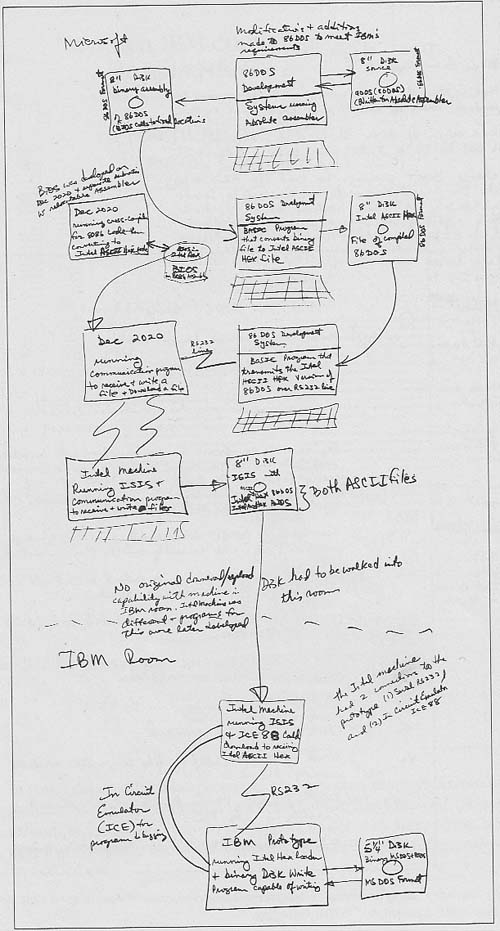 Microsoft
Modifications + additions
made to 86DOS to meet IBM's
requirements
8" Disk
binary assembly
of 86DOS
(BIOS calls to fixed locations
86DOS Format
86 DOS
Development
System running
Absolute assembler
8" Disk
source
QDOS (86DOS)
(Written for Absolute Assembler)
86DOS Format
BIOS was developed on
Dec 2020 + separate
w relocatable Assembler
Dec 2020
running cross-compiler
for 8086 code then
converting to
Intel ASCII Hex
BIOS
86 DOS Development
System
BASIC Program
that converts binary
file to Intel ASCII
Hex file
8" Disk
Intel ASCII Hex
File of compiled
86DOS
86 DOS Format
Dec 2020
running
Communication program
to receive + write a
file + Download a file
RS232
line
86 DOS Development
System
BASIC Program that
transmits the Intel
ASCII HEX Version of
86DOS over RS232 line
Intel Machine
Running ISIS +
Communication program
to receive + write files
8" Disk
ISIS
Intel Hex 86DOS
Intel Hex
both ASCII files
No original download/upload
capability with machine in
IBM room. Intel Machine was
different + programs for
this were later developed
Disk had to be walked into
this room
IBM Room
the Intel machine
had 2 connections to the
prototype (1) Serial RS232
and (2) In Circuit Emulator
ICE 88
Intel Machine
running ISIS
& ICE 88
download to receive
Intel ASCII Hex
In Circuit
Emulator
(ICE) for
program debugging
RS232
IBM Prototype
running Intel Hex Loader
+ binary Disk Write
Program capable of writing
5¼" Disk
Binary MSDOS + BIOS
MS DOS Format